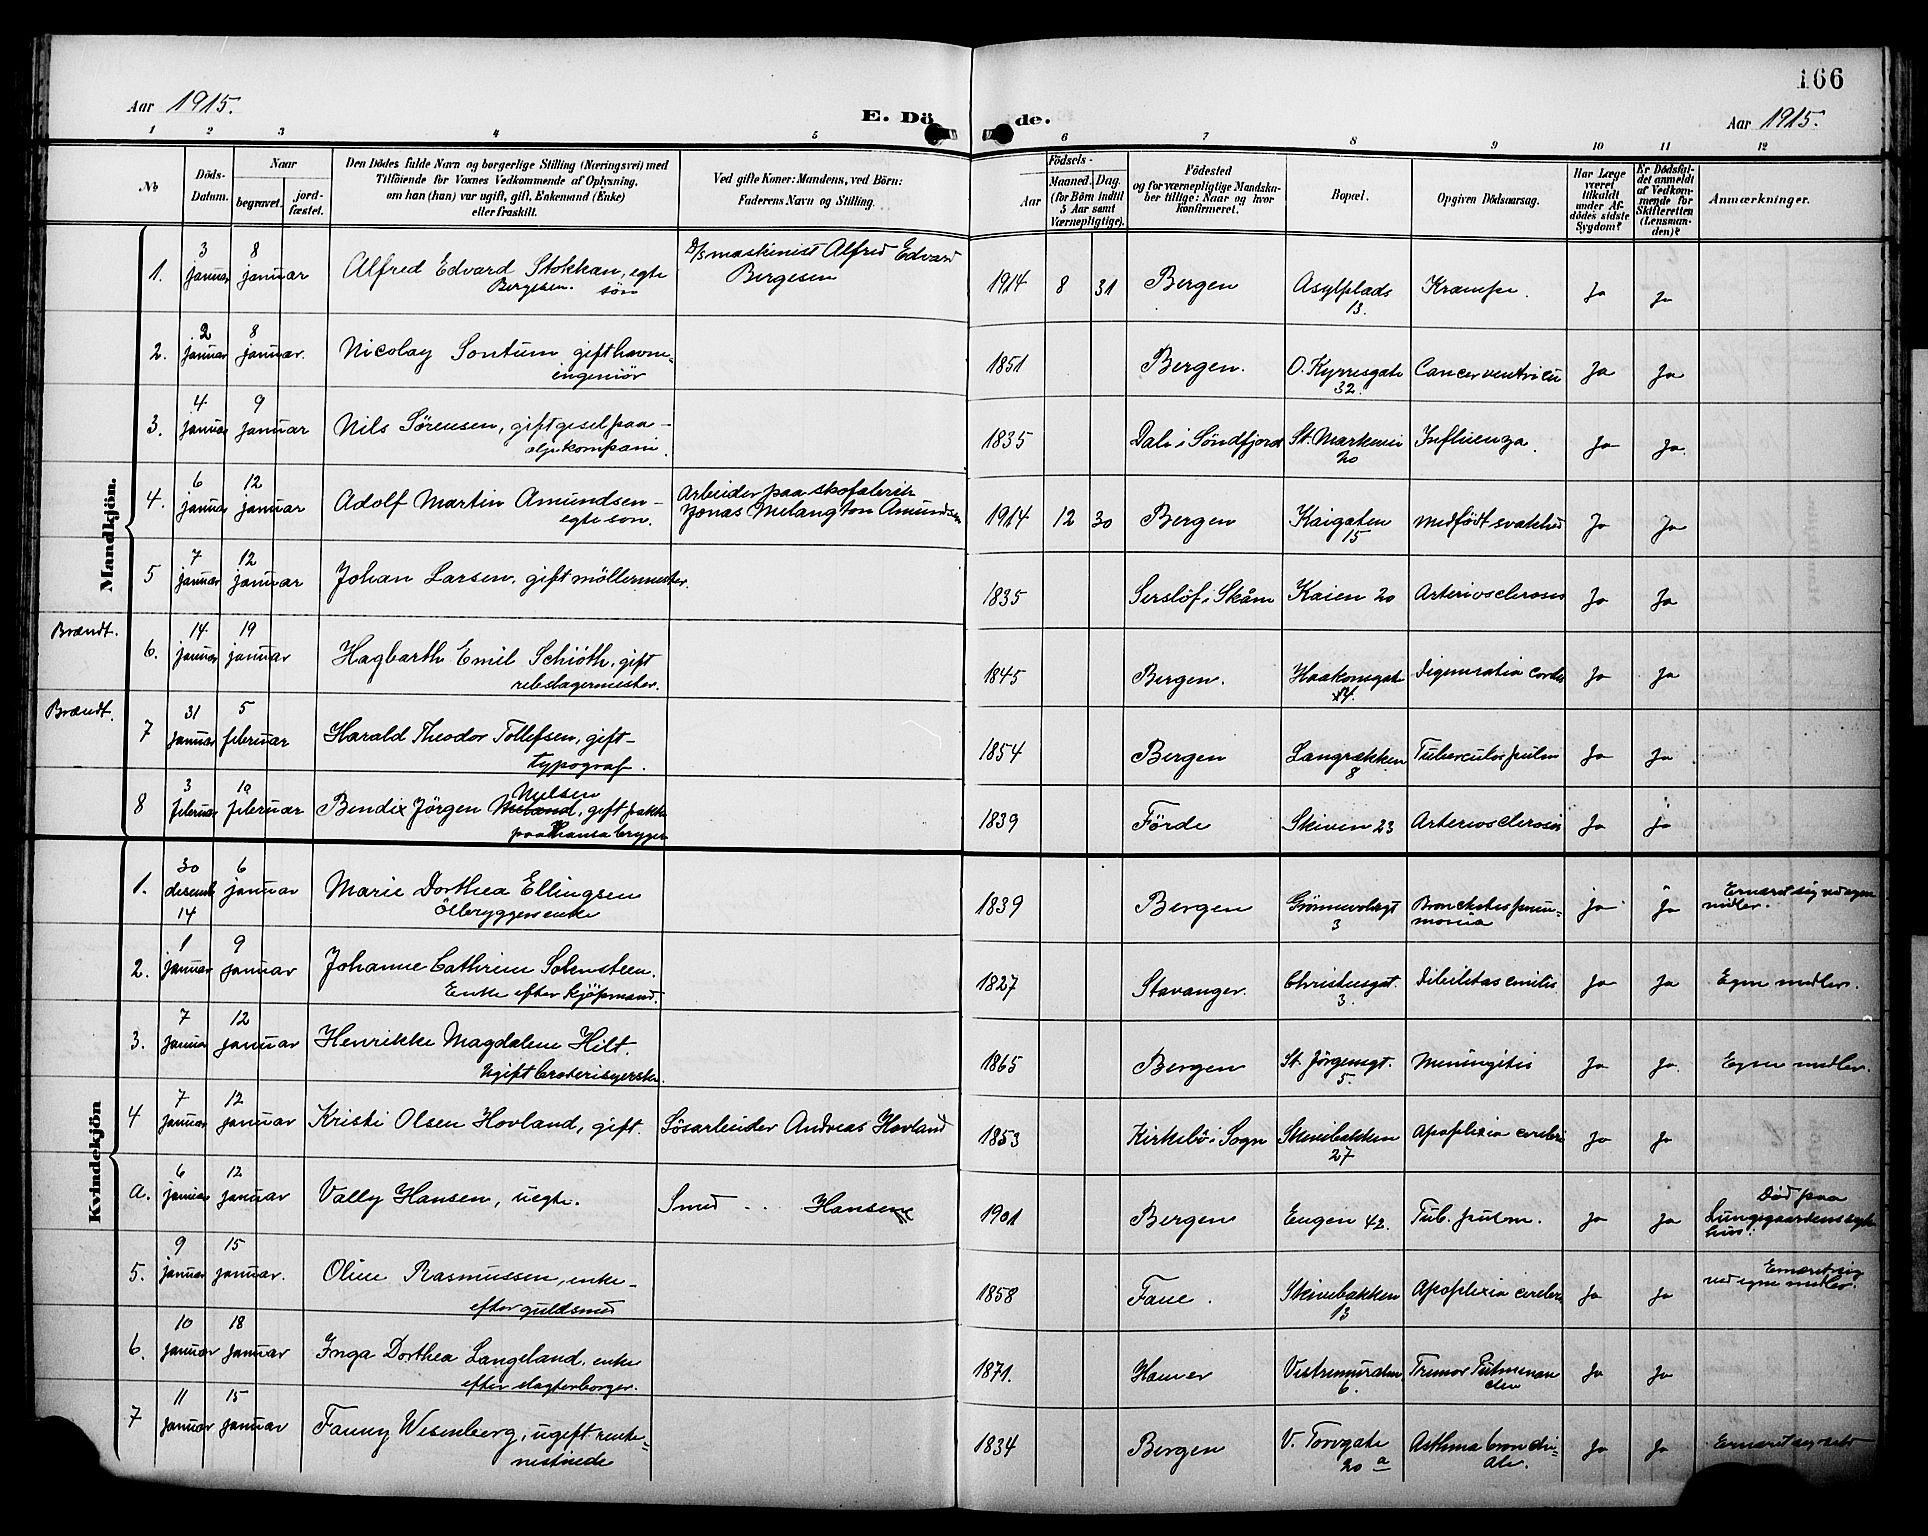 166
Aar 1915.
E. Dö de.
Aar 1915.
1 2 3 4 5 6 7 8 9 10 11 12
No
Döds-Datum.
Naar
begravet.
jord-fæstet.
Den Dödes fulde Navn og borgerlige Stilling (Næringsvei) med
Tilföiende for Voxnes Vedkommende af Oplysning,
om han (hun) var ugift, gift, Enkemand (Enke)
eller fraskilt.
Ved gifte Koner: Mandens, ved Börn:
Faderens Navn og Stilling.
Födsels-
Aar
Maaned. Dag
(for Börn indtil
5 Aar samt
Værnepligtige).
Födested
og for værnepligtige Mandska-
ber tillige: Naar og hvor
konfirmeret.
Bopæl.
Opgiven Dödsaarsag.
Har Læge
været
tilkaldt
under Af-
dödes sidste
Sygdom?
Er Dödsfal-
det anmeldt
af Vedkom-
mende for
Skifteretten
(Lensman-
den)?
Anmærkninger.
Mandkjön.
1. 3 januar 8 januar Alfred Edvard Stokkan, egte
Bergesen. sön
D/s maskinist Alfred Edvard
Bergesen
1914 8 31 Bergen Asylplads 13. Krampe. Ja Ja
2. 2 januar 8 januar. Nicolay Sontum, gift havne-
ingeniör
1851 Bergen. O. Kyrresgate 32. Cancer ventricu Ja Ja
3. 4 januar 9 januar Nils Sörensen, gift gesel paa
oljekompani.
1835 Dale i Söndfjord St. Markevei 20 Influenza. Ja Ja
4. 6 januar 12 januar Adolf Martin Amundsen
egte son.
Arbeider paa skofabrik
Jonas Melangton Amundsen
1914 12 30 Bergen Kaigaten 15 medfödt svakhed Ja Ja
5 7 januar 12 januar Johan Larsen, gift möllermester.
1835 Serslöf i Skåne Kaien 20 Arteriosclerosis Ja Ja
Brændt.
6. 14 januar 19 januar Hagbarth Emil Schiöth, gift
rebslagermester.
1845 Bergen. Haakonsgate Digeneratia cordis Ja Ja
Brændt.
7 31 januar 5 februar Harald Theodor Tollefsen, gift
typograf.
1854 Bergen Langrækken 8 Tuberculos pulm Ja Ja
8 3 februar 10 februar Bendix Jörgen Nielsen, gift pakke
paa Hansa brygge
1839 Förde Skiven 23 Arteriosclerosis Ja ja
Kvindekjön
1. 30 desemb 14 6 januar Marie Dorthea Ellingsen
Ölbryggers enke
1839 Bergen Grönnevoldsgt 3 Bronchitis pneu-
monia ja Ja Ernæret sig ved egne
midler.
2. 1 januar 9 januar Johanne Cathrine Solensteen.
Enke efter kjöpmand.
1827 Stavanger. Christiesgat. 3. Dibilitas senilis Ja Ja Egne midler.
3. 7 januar 12 januar Henrikke Magdalene Hilt.
Ugift broderisyerske.
1865 Bergen St. Jörgensgt. 5. Meningitis Ja Ja. Egne midler.
4 7 januar 12 januar Kristi Olsen Hovland, gift. Løsarbeider Andreas Hovland
1853 Kirkebö i Sogn Skivebakken 27 Apoplexia cerebri Ja Ja
a. 6 januar 12 januar Vally Hansen, uegte. Smed . . Hansen
1901 Bergen Engen 42. Tub. pulm. Ja Ja Död paa
Lungegaardens syke
hus.
5. 9 januar 15 januar. Oline Rasmussen, enke
efter guldsmed
1858 Fane. Skivebakken 13 Apoplexia cerebri Ja Ja Ernæret sig
ved egne midler
6. 10 januar 18 januar Inga Dorthea Langeland, enke
efter slagterborger.
1871. Hamer Vestremuralm. 6. Tremor Ja Ja
7 11 januar 15 januar Fanny Wesenberg, ugift rente-
nistinde
1834 Bergen V. Torvgate 20 a Asthma bronchi-
ale. Ja Ja Ernæret sig selv